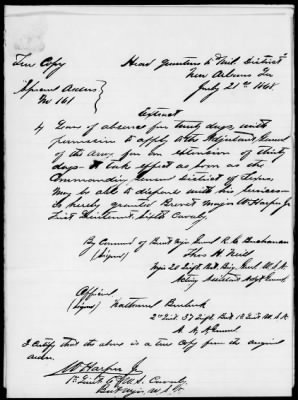 True Copy
Head Quarters 5th Mil District
New Orleans La
July 21st 1868
Special Orders
No 161
Extract
4 Leave of absence for twenty days with
permission to apply to the Adjutant General
of the army for an extension of thirty
days to take effect as soon as the
Commanding General District of Texas
may be able to dispense with his services
is hereby granted Brevet Major W Harper Jr
First Lieutenant Sixth Cavalry
By Command of Bvt Major General R. C. Buchanan
(Signed) Thos H. Neill
Major 20 Inft Bvt Brig Genl U.S.A
Acting Assistant Adjt General
Official
(Signed) Nathaniel Burbank
2nd Lieut 37 Inft Bvt 1st Lieut U.S.A
A. A. A General
I certify that the above is a true copy from the original
order.
W Harper Jr
1st Lieut 6th U.S. Cavalry
Bvt Major, U.S.A.